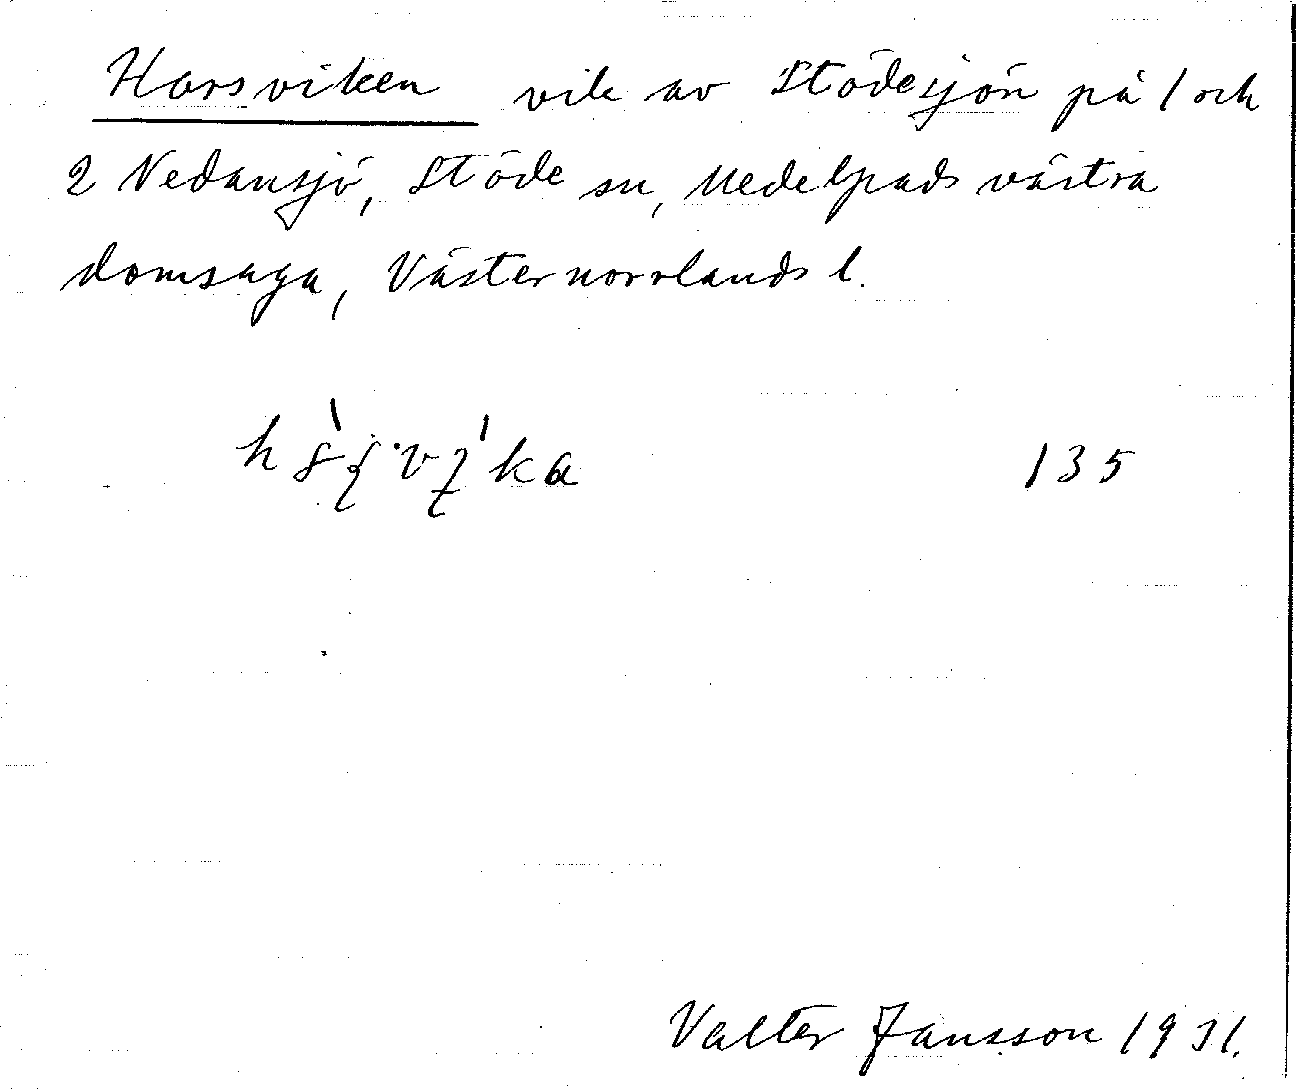 Horsviken vik av Stödesjön på 1 och
2 Nedansjö, Stöde sn, Medelpads västra
domsaga, Västernorrlands l.
135
Valter Jansson 1931.